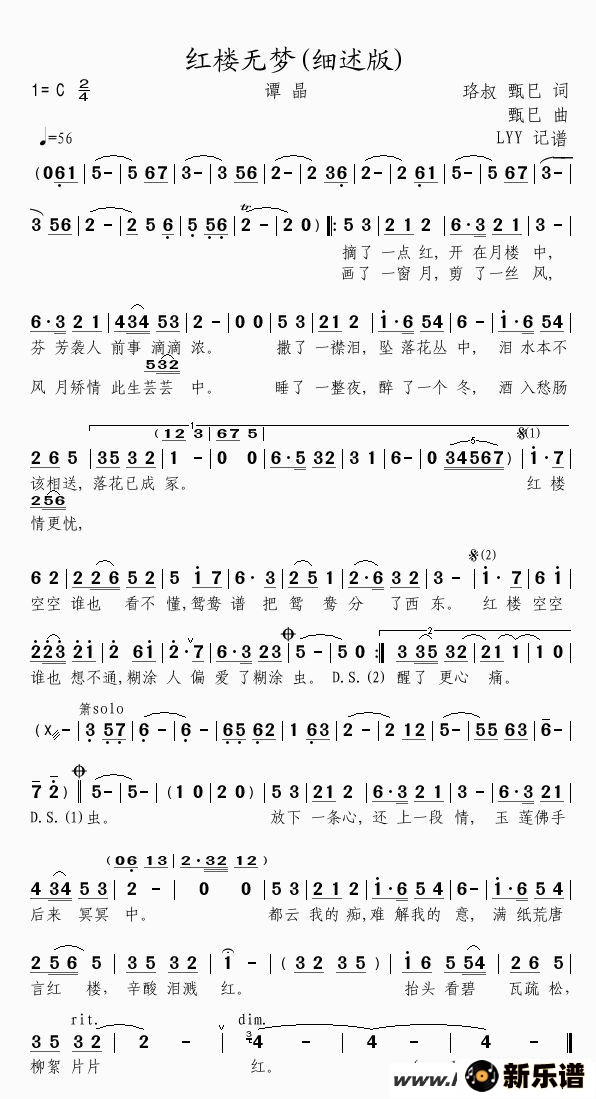 红楼无梦(细述版)
1= C 2/4
谭 晶
珞叔 甄巳 词
甄巳 曲
♩=56
LYY 记谱
(061|5-|5 67|3-|3 56|2-|2 36|2-|2 61|5-|5 67|3-|
3 56|2-|2 5 6|5 56|2-|2 0)‖:5 3|2 1 2|6·3 2 1|3 -|
摘了 一点 红, 开 在月楼 中,
画了 一窗 月, 剪 了一丝 风,
6·3 2 1|434 53|2-|0 0|5 3|21 2|1·6 54|6-|1·6 54|
芬 芳袭人 前事 滴滴 浓。 撒了 一襟泪, 坠 落花丛 中, 泪 水本不
532
风 月矫情 此生芸芸 中。 睡了 一整夜, 醉 了一个 冬, 酒 入愁肠
1
(12 3|67 5|
𝄋(1)
2 6 5|35 3 2|1 -|0 0|6·5 32|3 1|6-|0 34567)|1·7
5
该相送, 落花已成 冢。 红 楼
256
情更忧,
𝄋(2)
6 2|2 2 6 5 2|5 1 7|6· 3|2 5 1|2·6 3 2|3 -|1· 7|6 1|
空空 谁也 看不 懂, 鸳鸯 谱 把 鸳 鸯 分 了西 东。 红 楼 空空
223 21|2 61|2·7|6·3 23|5-|5 0:‖3 35 32|21 1|1 0|
2
谁也 想不通, 糊涂 人 偏 爱 了糊涂 虫。 D.S.(2) 醒了 更心 痛。
箫solo
(X-|3 57|6-|6-|65 62|1 63|2-|2 12|5-|55 63|6-|
7 2)‖5-|5-|(1 0|2 0)|5 3|21 2|6·3 21|3-|6·3 21|
D.S.(1)虫。 放下 一条心, 还 上一段 情, 玉 莲佛手
(06 13|2·32 12)
4 34 5 3|2 -|0 0|5 3|2 1 2|1·6 5 4|6-|1·6 5 4|
后来 冥冥 中。 都云 我的 痴, 难 解我的 意, 满 纸荒唐
2 5 6 5|3 5 3 2|1 -|(3 2 3 5)|1 6 5 54|2 6 5|
言红 楼, 辛酸 泪溅 红。 抬头 看碧 瓦疏 松,
rit. dim.
3 5 3 2|2 -|4 -|4 -|4 -‖
柳絮 片片 红。
www.
新乐谱